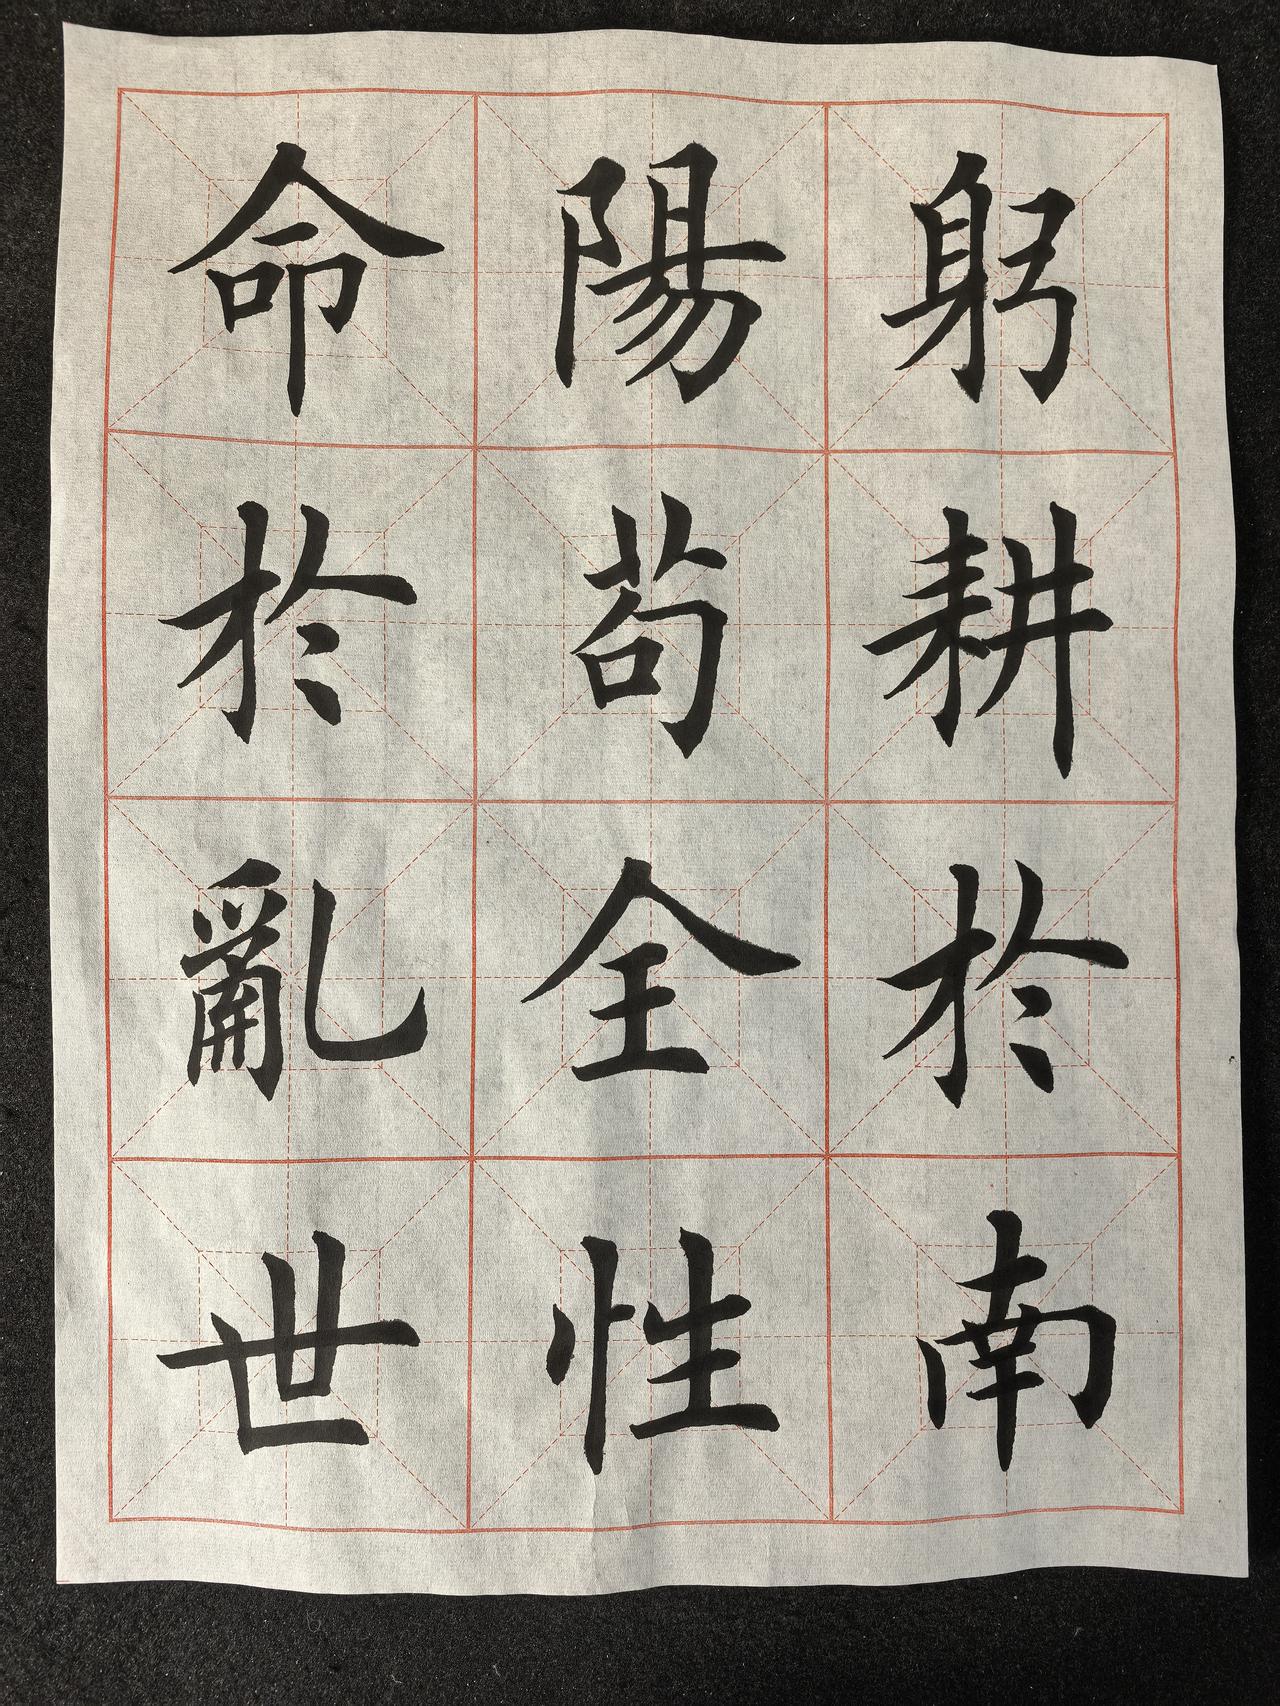 躬耕於南
陽苟全性
命於亂世